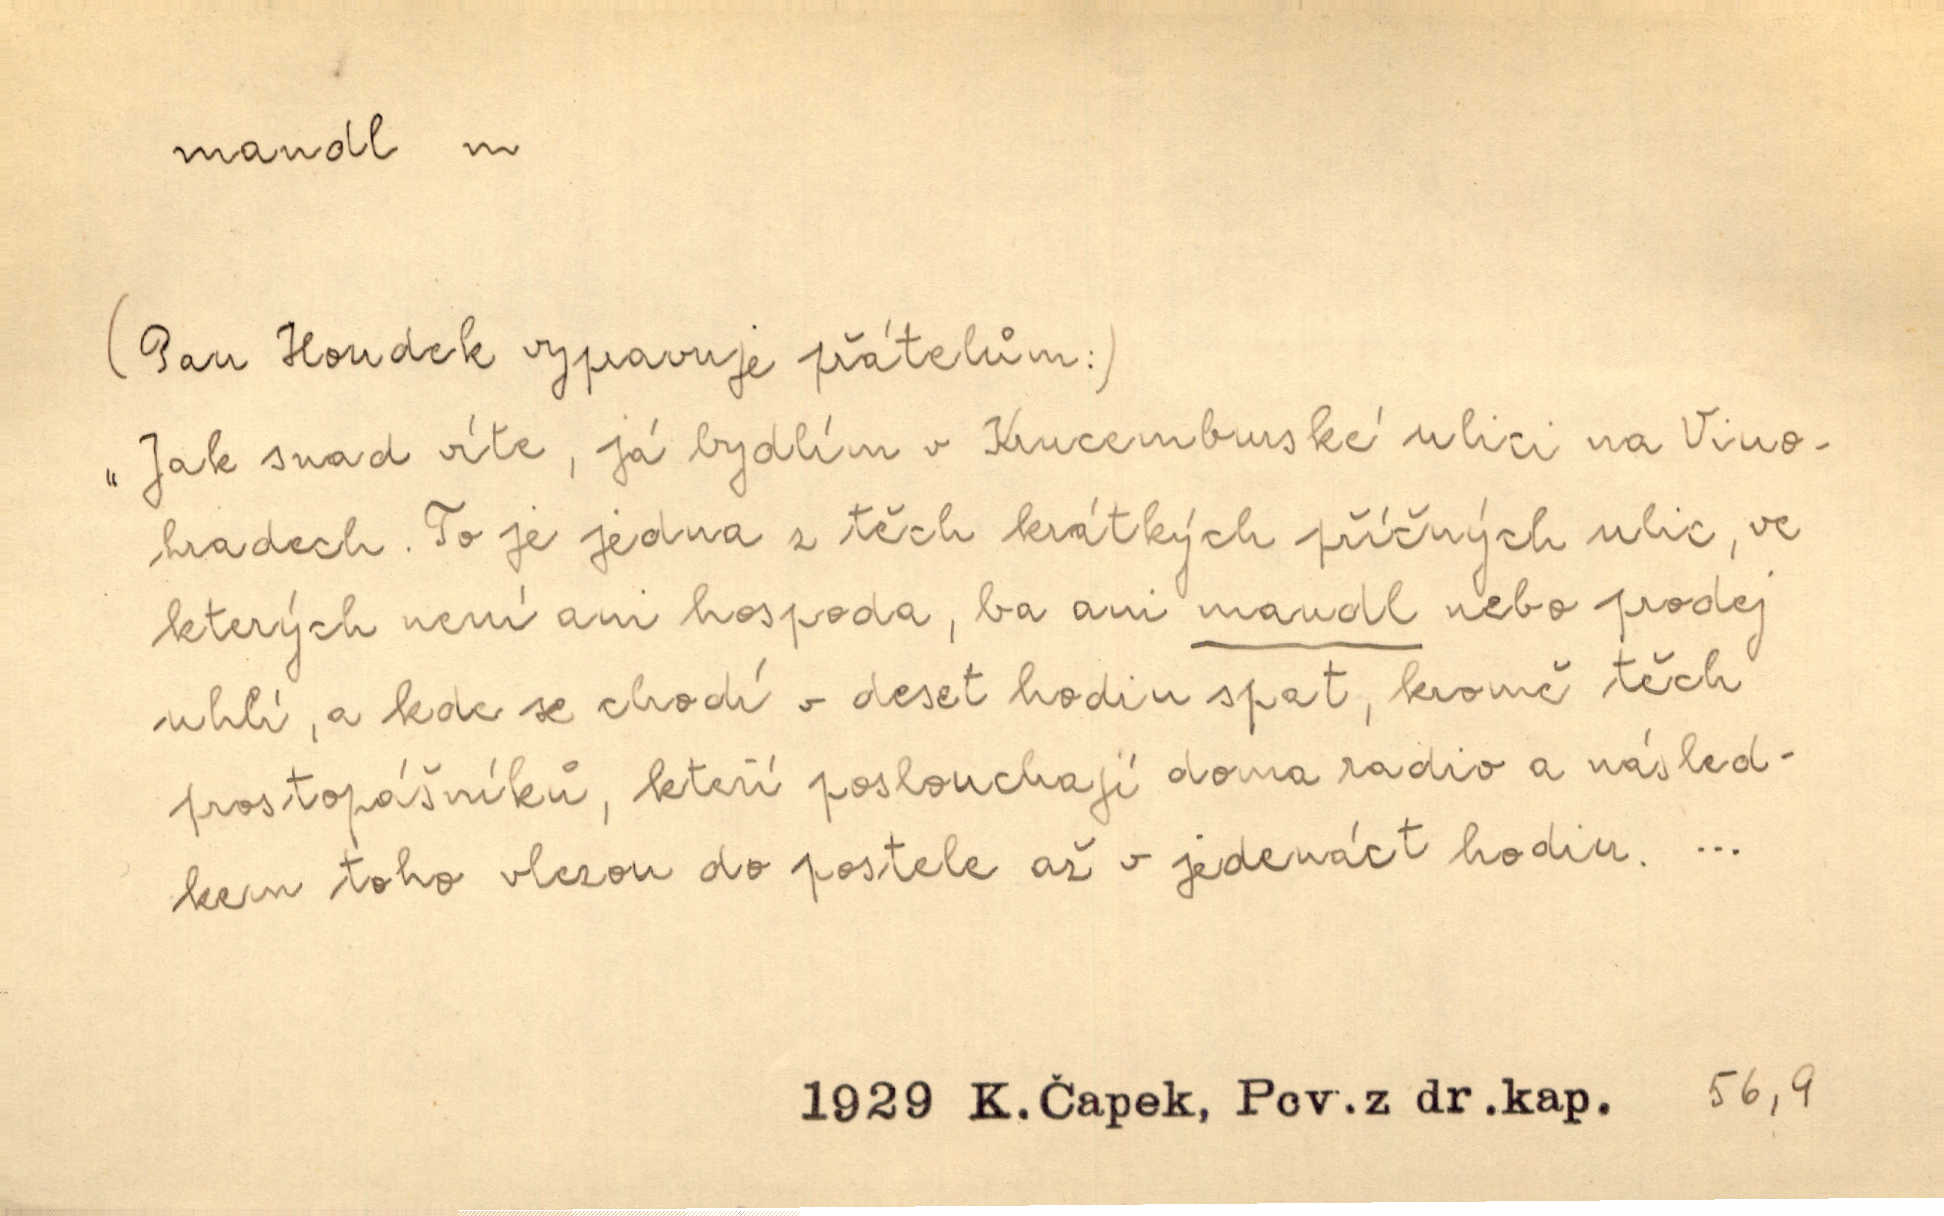 mandl m
(Pan Houdek vypravuje přátelům:)
„Jak snad víte, já bydlím v Krucemburské ulici na Vino-
hradech. To je jedna z těch krátkých příčných ulic, ve
kterých není ani hospoda, ba ani mandl nebo prodej
uhlí, a kde se chodí v deset hodin spat, kromě těch
prostopášníků, kteří poslouchají doma radio a násled-
kem toho vlezou do postele až v jedenáct hodin. ...
1929 K. Čapek, Pov. z dr. kap. 56,9